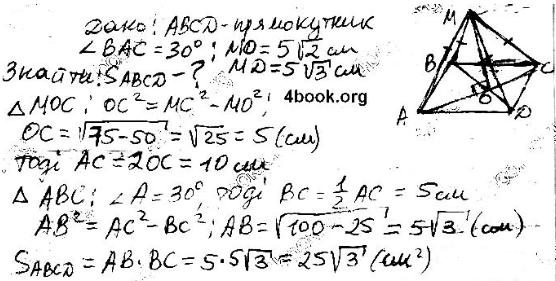 Дано: ABCD - прямокутник
∠BAC = 30°; MO = 5√2 см
MD = 5√3 см
Знайти: S_ABCD - ?
△ MOC: OC² = MC² - MO²;
4book.org
OC = √75-50 = √25 = 5 (см)
тоді AC = 2OC = 10 см
△ ABC: ∠A = 30°, тоді BC = 1/2 AC = 5 см
AB² = AC² - BC²; AB = √100-25 = 5√3 (см)
S_ABCD = AB·BC = 5·5√3 = 25√3 (см²)
M
B
C
O
A
D